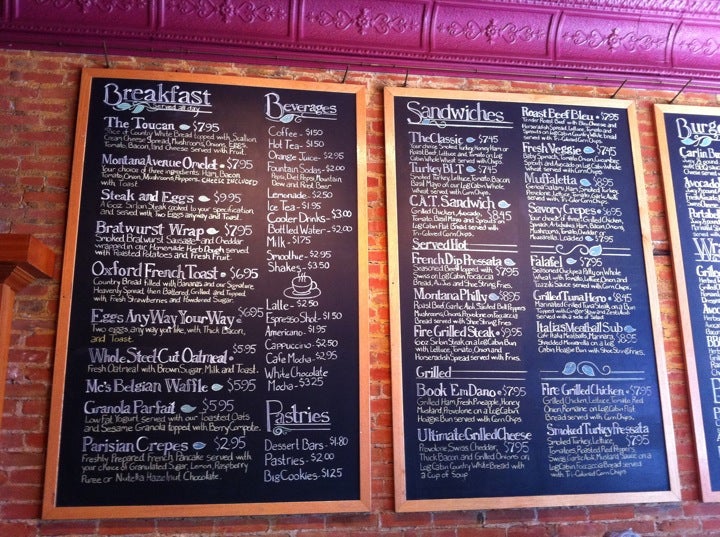 Breakfast
served all day
The Toucan $7.95
Slice of Country White Bread topped with Scallion
Cream Cheese Spread, Mushrooms, Onions, Eggs,
Tomato, Bacon, and Cheese Served with Fruit.
Montana Avenue Omelet $7.95
Your choice of three ingredients: Ham, Bacon,
Tomato, Onion, Mushrooms, Peppers, CHEESE INCLUDED
with Toast.
Steak and Eggs $9.95
10oz Sirloin Steak cooked to your specification
and served with Two Eggs anyway and Toast.
Bratwurst Wrap $7.95
Smoked Bratwurst Sausage and Cheddar
wrapped in our Homemade Herb Dough served
with Roasted Potatoes and Fresh Fruit.
Oxford French Toast $6.95
Country Bread filled with Bananas and our Signature
Heavenly Spread, then Battered, Grilled, and Topped
with Fresh Strawberries and Powdered Sugar.
Eggs Any Way Your Way $6.95
Two eggs, any way you like, with Thick Bacon,
and Toast.
Whole Steel Cut Oatmeal $5.95
Fresh Oatmeal with Brown Sugar, Milk and Toast.
Mc's Belgian Waffle $5.95
Granola Parfait $5.95
Low Fat Yogurt served with our Toasted Oats
and Sesame Granola topped with Berry Compote.
Parisian Crepes $2.95
Freshly Prepared French Pancake served with
your choice of Granulated Sugar, Lemon, Raspberry
Puree or Nutella Hazelnut Chocolate.
Beverages
Coffee - $1.50
Hot Tea - $1.50
Orange Juice - $2.95
Fountain Sodas - $2.00
Pepsi, Diet Pepsi, Mountain
Dew and Root Beer
Lemonade - $2.50
Ice Tea - $1.95
Cooler Drinks - $3.00
Bottled Water - $2.00
Milk - $1.75
Smoothie - $2.95
Shakes - $3.50
Latte - $2.50
Espresso Shot - $1.50
Americano - $1.95
Cappuccino - $2.50
Cafe Mocha - $2.95
White Chocolate
Mocha - $3.25
Pastries
Dessert Bars - $1.80
Pastries - $2.00
Big Cookies - $1.25
Sandwiches
The Classic $7.45
Your choice Smoked Turkey, Honey Ham or
Roast Beef, Lettuce, and Tomato on Log
Cabin Whole Wheat served with Corn Chips.
Turkey B.L.T. $7.45
Smoked Turkey, Lettuce, Tomato, Bacon,
Basil Mayo on our Log Cabin Whole
Wheat, served with Corn Chips.
C.A.T. Sandwich $8.45
Grilled Chicken, Avocado,
Tomato, Basil Mayo and Sprouts on
Log Cabin Flat Bread served with
Tri-Colored Corn Chips.
Served Hot
French Dip Pressata $7.95
Seasoned Beef topped with
Swiss on Log Cabin Focaccia
Bread, Au Jus and Shoe String Fries.
Montana Philly $8.95
Roast Beef, Garlic Aioli, Sautéed Bell Peppers
Mushrooms, Onions, Provolone on Focaccia
Bread served with Shoe String Fries.
Fire Grilled Steak $9.95
10oz Sirloin Steak on Log Cabin Bun
with Lettuce, Tomato, Onion and
Horseradish Spread, served with Fries.
Grilled
Book Em Dano $7.95
Grilled Ham, Fresh Pineapple, Honey
Mustard, Provolone on a Log Cabin
Hoagie Bun served with Corn Chips
Ultimate Grilled Cheese
Provolone, Swiss, Cheddar, $7.95
Thick Bacon and Grilled Onions on
Log Cabin Country White Bread with
a Cup of Soup
Roast Beef Bleu $7.95
Tender Roast Beef with Bleu Cheese and
Horseradish Spread, Lettuce, Tomato and
Sprouts on Log Cabin Country White Bread
served with Corn Chips.
Fresh Veggie $7.45
Baby Spinach, Tomato, Onion, Cucumber,
Sprouts and Avocado on Log Cabin Whole
Wheat served with Corn Chips.
Muffaletta $8.95
Genoa Salami, Ham, Smoked Turkey,
Provolone, Lettuce, Tomato, Olive
with Tri-Color Corn Chips.
Savory Crepes $6.95
Your choice of three Grilled Chicken,
Spinach, Artichokes, Ham, Bacon, Onions,
Mushrooms, Tomato, Cheddar or
Mozzarella. Loaded $7.95
Falafel $7.95
Seasoned Chickpea Patty on Whole
Wheat with Tomato, Lettuce, Onion and
Tzatziki Sauce served with Corn Chips.
Grilled Tuna Hero $8.45
Marinated Tuna Grilled with Basil on a Bun
Topped with Ginger Slaw and Zesty Aioli
served with a side of Salad
Italias Meatball Sub $7.95
Lean Italia Meatballs, Marinara,
Shredded Mozzarella on a Log
Cabin Hoagie Bun with Shoe String Fries.
Fire Grilled Chicken $7.95
Grilled Chicken, Lettuce, Tomato, Red
Onion, Romaine on Log Cabin Bread
served with Corn Chips.
Smoked Turkey Pressata
Smoked Turkey, Lettuce, $7.95
Tomatoes, Roasted Red Peppers,
Swiss, Garlic Aioli, Mustard Sauce on
Log Cabin Focaccia Bread served
with Tri-Colored Corn Chips.
Burg
Carlin B
Avocado
Portab